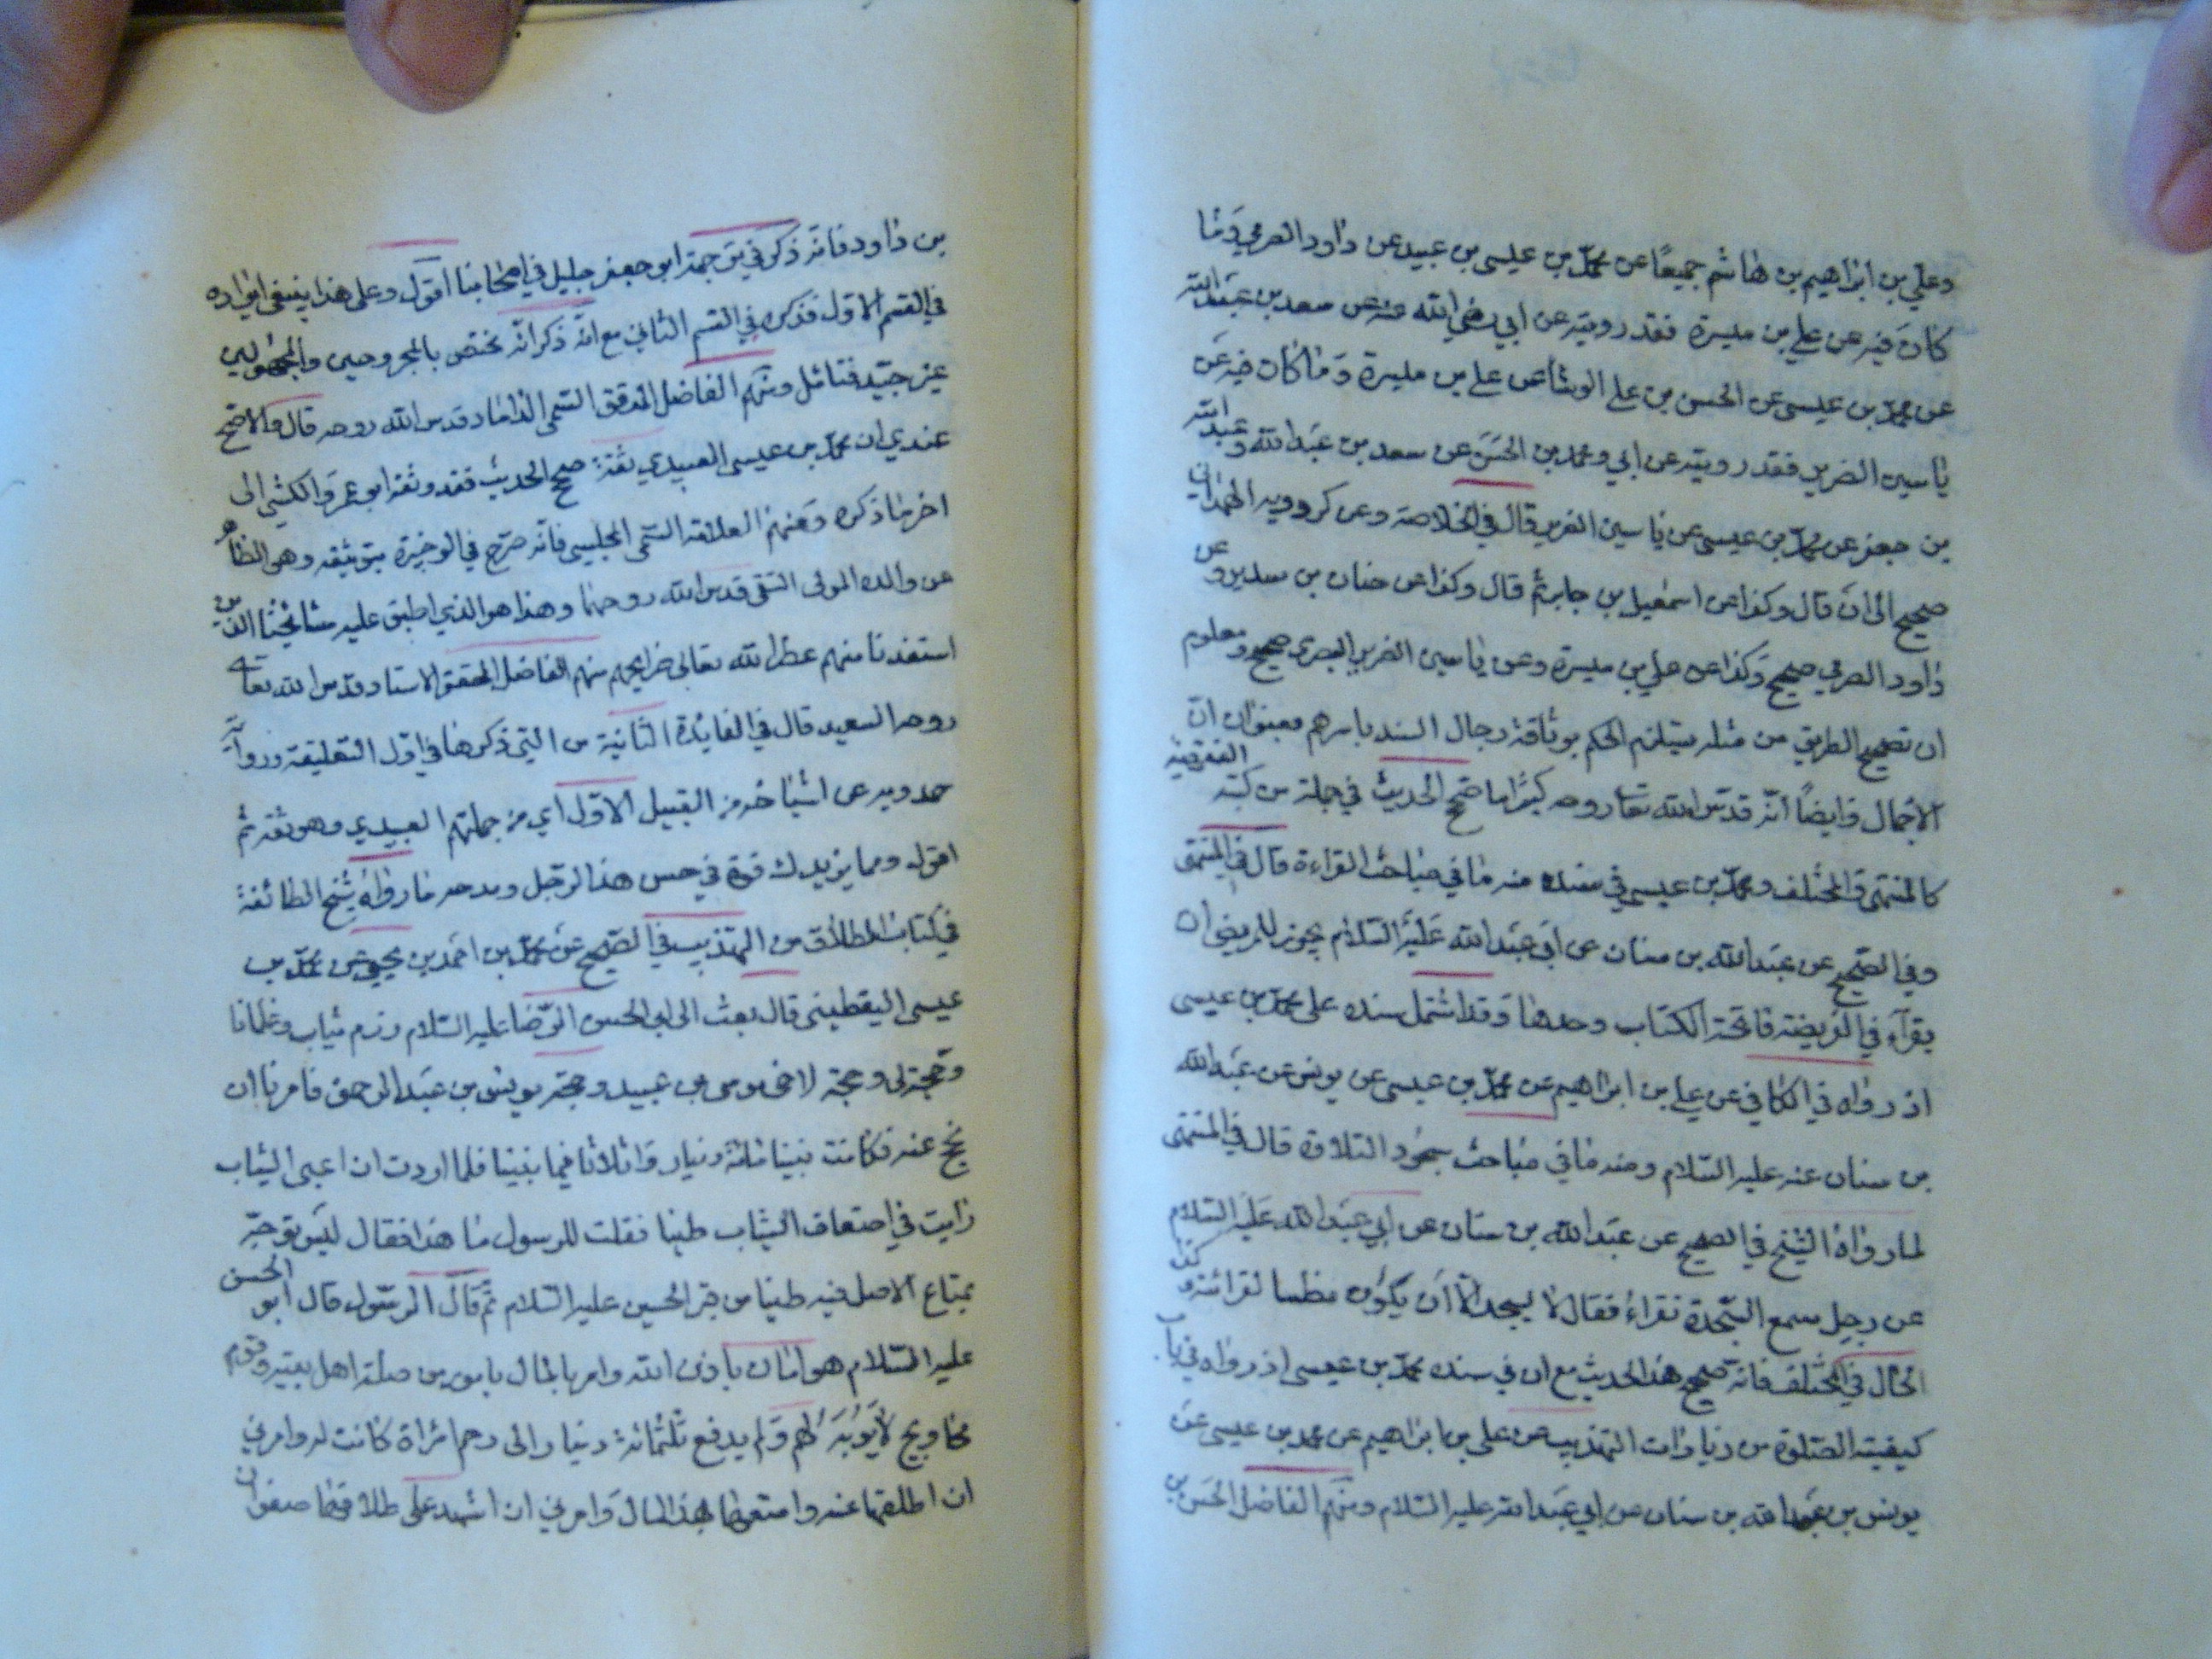 وعلي بن ابراهيم بن هاشم جميعًا عن محمّد بن عيسى بن عبيد عن داود الصرمي وَمٰا
كانَ فيه عن علي بن ميسرة فقد رويته عن ابي رضي الله عنه عن سعد بن عبد الله
عن محمّد بن عيسى عن الحسن بن علي الوشّا عن علي بن ميسرة وَمٰا كان فيه عَن
ياسين الضرير فقد رويته عن ابي ومحمد بن الحسَن عن سعد بن عبَد الله وعبد الله
بن جعفر عن محمّد بن عيسى عن ياسين الضرير قال في الخلاصة وعن كردويه الهمداني
صحيح الى ان قال وكذا عن اسمعيل بن جابر ثم قال وكذا عن حنان بن سدير وعن
داود الصرمي صحيح وَكذا عن علي بن ميسرة وعن ياسين الضرير البصرى صحيح ومعلوم
ان تصحيح الطريق من مثله يستلزم الحكم بوثاقة رجال السند باسرهم فعنوان انّ
الاجمال وايضاً انّه قدّس الله تعا روحه كثيرًا ما صحّح الحديث في جملة من كتبه الفقهيّة
كالمنتهى والمختلف ومحمّد بن عيسى في سنده منه مٰا في مباحث القراءة قال في المنتهى
وفي الصّحيح عن عبَد الله بن سنان عن ابي عبَد الله عَليْه السّلام يجوز للمريض ان
يقرآء في الفريضة فاتحة الكتاب وحدها وَقد اشتمل سنده على محمّد بن عيسى
اذ رواه في الكافي عن علي بن ابراهيم عن محمّد بن عيسى عن يونس عن عبَد الله
بن سنان عنه عليه السّلام ومنه مٰا في مباحث سجُود التلاوة قال في المنتهى
لما رواهُ الشيخ في الصحيح عن عبَد الله بن سنان عن ابي عبَد الله عَليْه السّلام
عن رجل سمع السّجدة تقراءُ فقال لا يسجد الّا أن يكون منصتا لقرائته وكذا
الحال في المختلف فانّه صحّح هذا الحديث مع ان في سنده محمّد بن عيسى اذ رواه في باب
كيفية الصّلوة من زيادات التهذيب عن علي بن ابراهيم عن محمد بن عيسى عن
يونس بن عبَد الله بن سنان عن ابي عبَد الله عليه السّلام ومنهم الفاضل الحَسَن بن
بن داود فانّه ذكر في ترجمة ابو جعفر جليل في اصحابنا اقول وعلى هذا ينبغي ايراده
في القسم الاوّل فذكره في القسم الثاني مع انّه ذكر انّه يختص بالمجروحين والمجهولين
غير جيّد فتأمل ومنهم الفاضل المدقق السّمى الداماد قدس الله روحه قال والاصحّ
عندي ان محمّد بن عيسى العبيدي ثقة صحيح الحديث فقد وثقه ابو عمرو الكشي الى
اخر مٰا ذكره وَمنهمْ العلامة السّمى المجلسي فانّه صرّح في الوجيزة بتوثيقه وهى الظاهر
عن والده المولى التقى قدس الله روحهما وهذا هو الذي اطبق عليه مشايخنا الذين
استفدنا منهم عطر الله تعالى ضرايحهم منهم الفاضل المحقق الاستاد قدّس الله تعا
روحه السعيد قال في الفايدة الثانية من التي ذكرها في اوّل التعليقة ورواية
حمدويه عن اشياخه من القبيل الاوّل اي من جملتهم العبيدي وهو ثقة ثم
اقول ومما يزيدك قوة في حسن هذا الرّجل ومدحه مٰا رواه شيخ الطائفة
في كتاب الطلاق من التهذيب في الصّحيح عن محمّد بن احمد بن يحيى عن محمّد بن
عيسى اليقطيني قال بعث الى ابي الحسن الرّضا عليه السّلام رزم ثياب وغلمانا
وحجّة لى وحجة لاخى موسى بن عبيد وحجة يونس بن عبَد الرحمن فامرنا ان
نحج عنه فكانت بيننا مائة دينار وَاثلاثا فيما بيننا فلما اردت ان اعبى الثياب
رايت في اضعاف الثياب طينا فقلت للرسول مٰا هذا فقال ليَس يوجّه
بمتاع الاجعل فيه طينا من قبر الحسين عليه السّلام ثمّ قال الرسول قال ابو الحسن
عليه السّلام هو امان باذن الله وامر بالمال بامور من صلة اهل بيته وقوم
محاويج لا يوبه لهم وَلم يدفع ثلثمائة دينار الى رحم امراة كانت له وامرني
ان اطلقها عنه وامتعها بهذا المال وَامرني ان اشهد على طلاقها صفوان